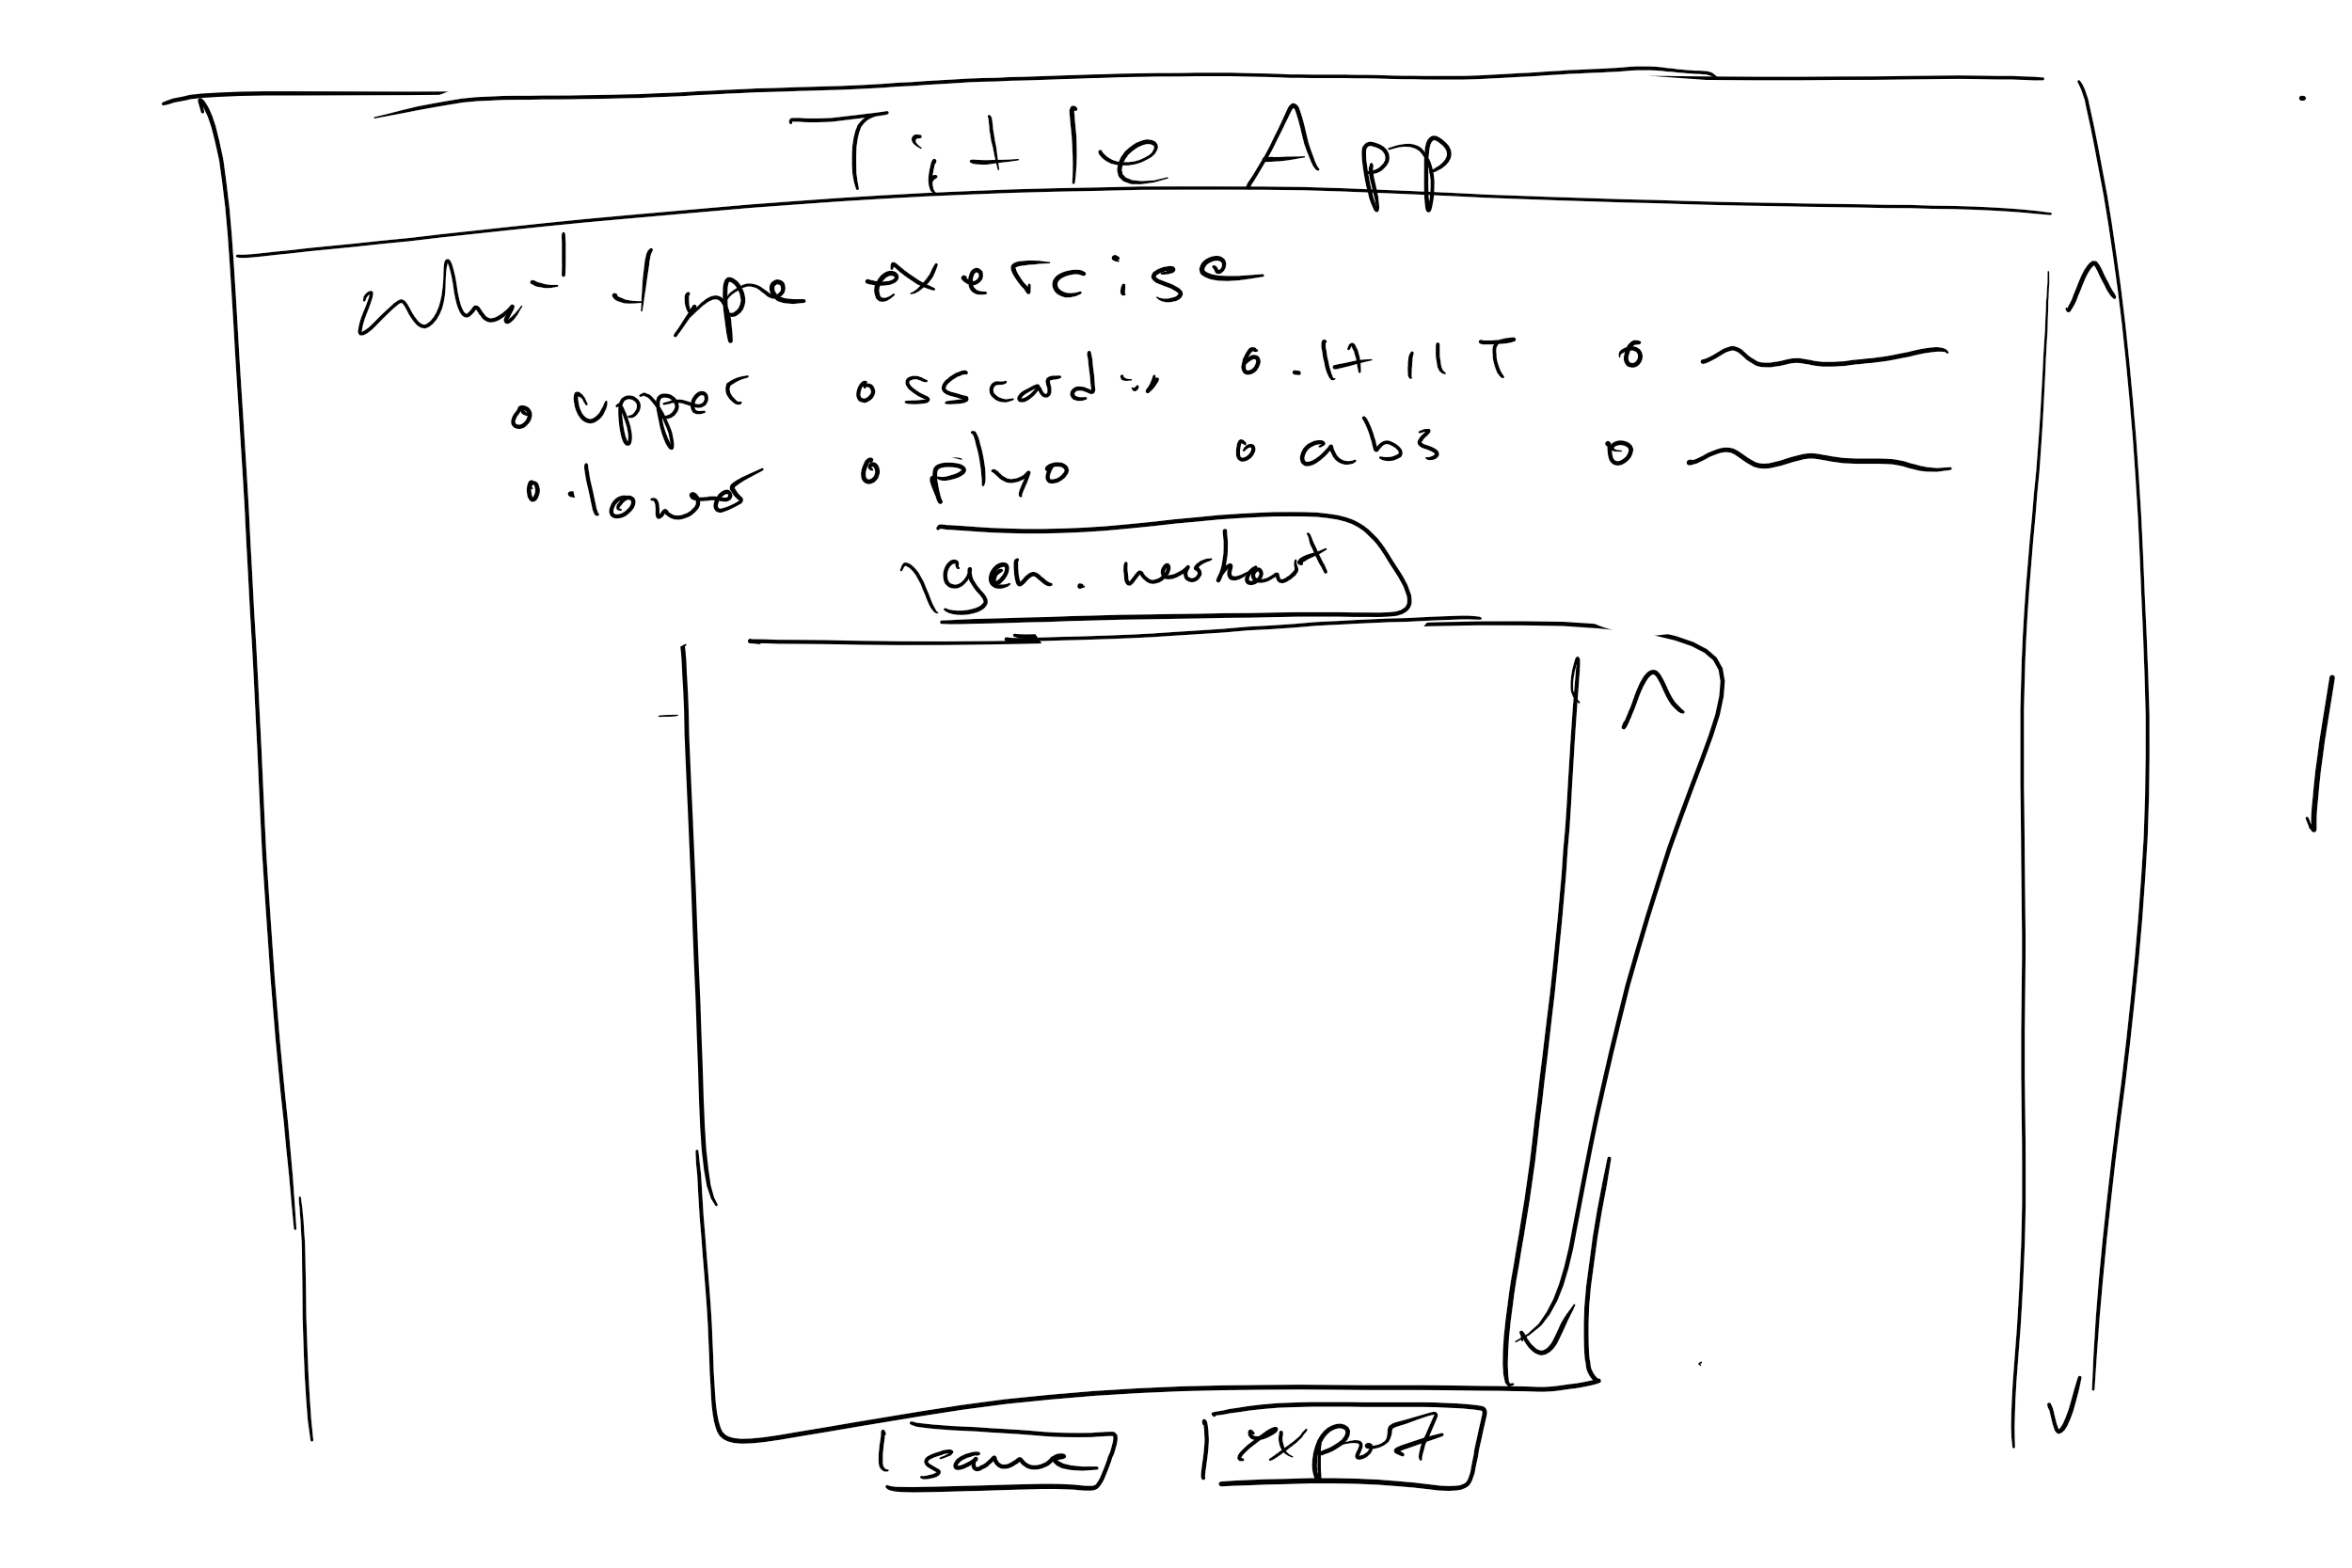 Title App
type exercise
upper cardio HIIT
lower plyo abs
gen. workout
save export